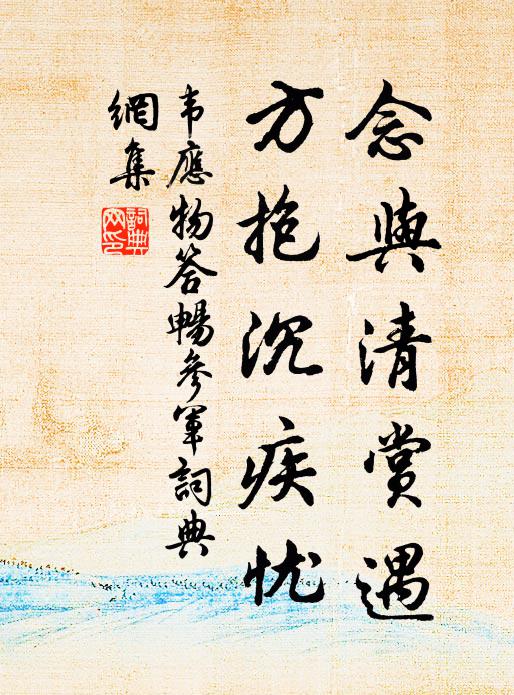 念與清賞遇
方抱沉疾忧
韦應物答暢參軍詞典
網集
詞典
网印